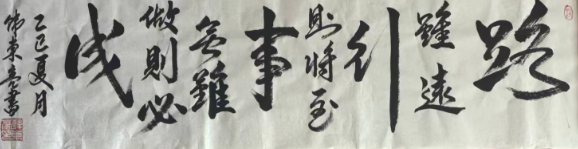 路
雖遠
行
則將至
事
雖難
做則必
成
乙巳夏月
東書